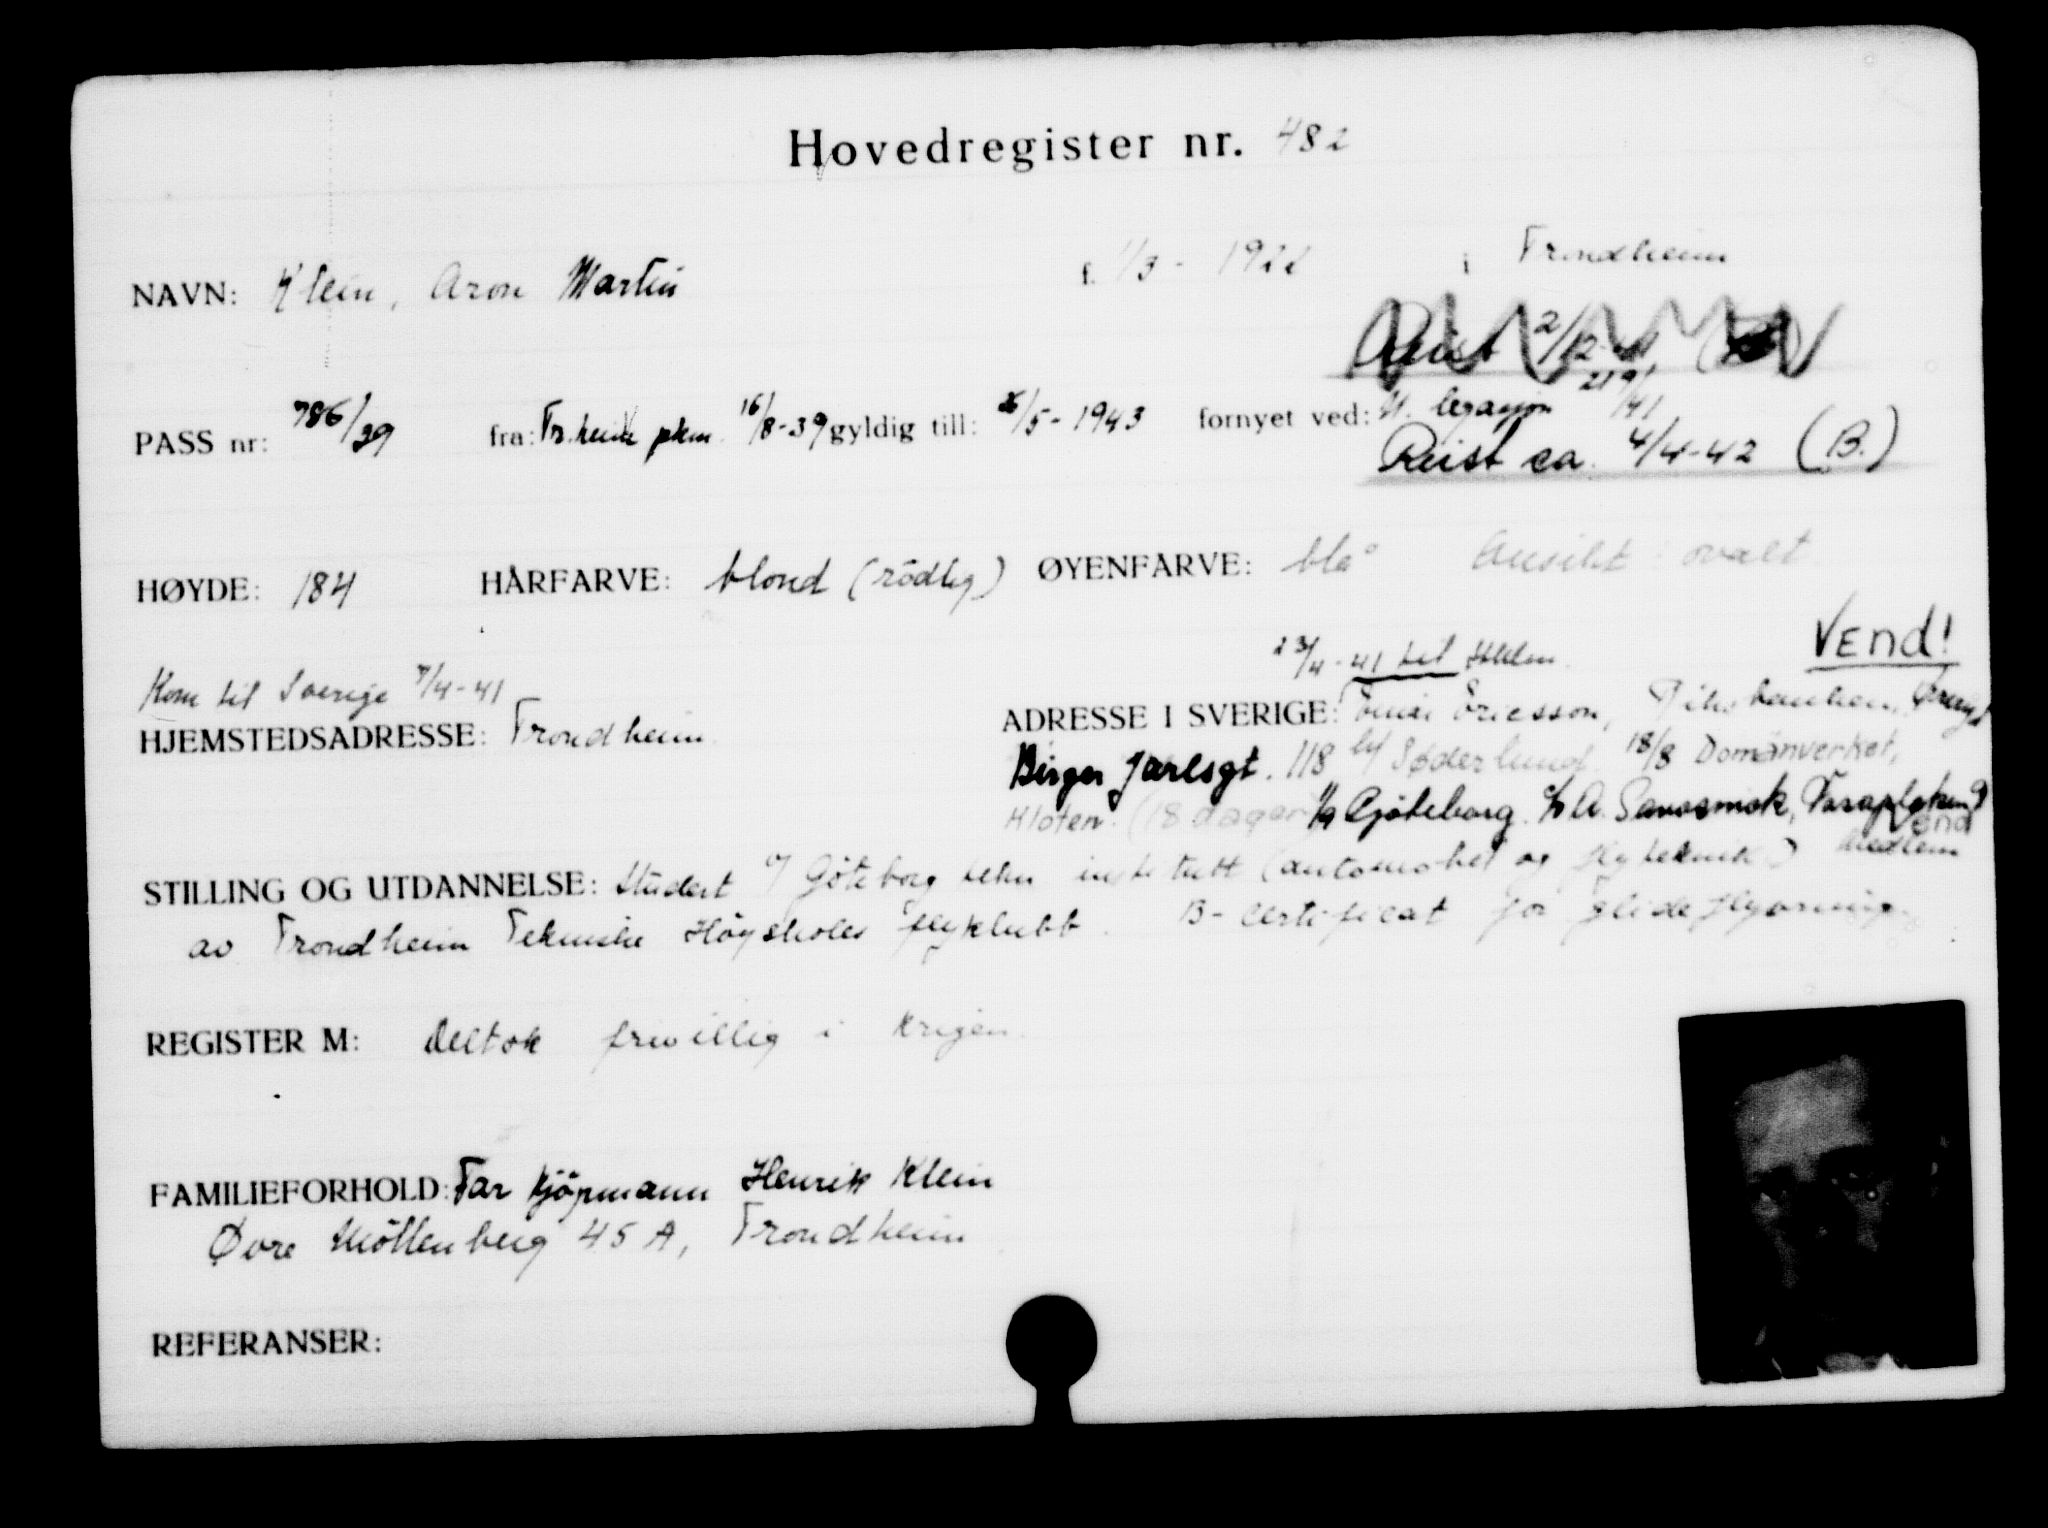 Hovedregister nr. 482
NAVN: Klein, Aron Martin f. 1/3 - 1922 i Trondheim
Reist 2/12-41
PASS nr: 786/39 fra: Tr.heim pkm. 16/8-39 gyldig till: 26/5-1943 fornyet ved: N. legasjon 21 9/41
Reist ca. 4/4-42 (B.)
HØYDE: 184 HÅRFARVE: blond (rödlig) ØYENFARVE: blå Ansikt: ovalt
VEnd!
23/4-41 til Sthlm.
Kom til Sverige 7/4-41
HJEMSTEDSADRESSE: Trondheim. ADRESSE I SVERIGE: Ericsson,
Birger Jarlsgt. 118 bf Søderlund 18/8 Domänverket,
Kloten. (18 dager) 1/9 Gjøteborg. c/o A. Savosnick,
STILLING OG UTDANNELSE: Student v/ Göteborg tekn institutt (automobil og flyteknikk) Medlem
av Trondheim Tekniske Høyskoles flyklubb. B-certificat for glideflyvning.
REGISTER M: Deltok frivillig i krigen.
FAMILIEFORHOLD: Far kjöpmann Henrik Klein
Øvre Möllenberg 45 A, Trondheim
REFERANSER: